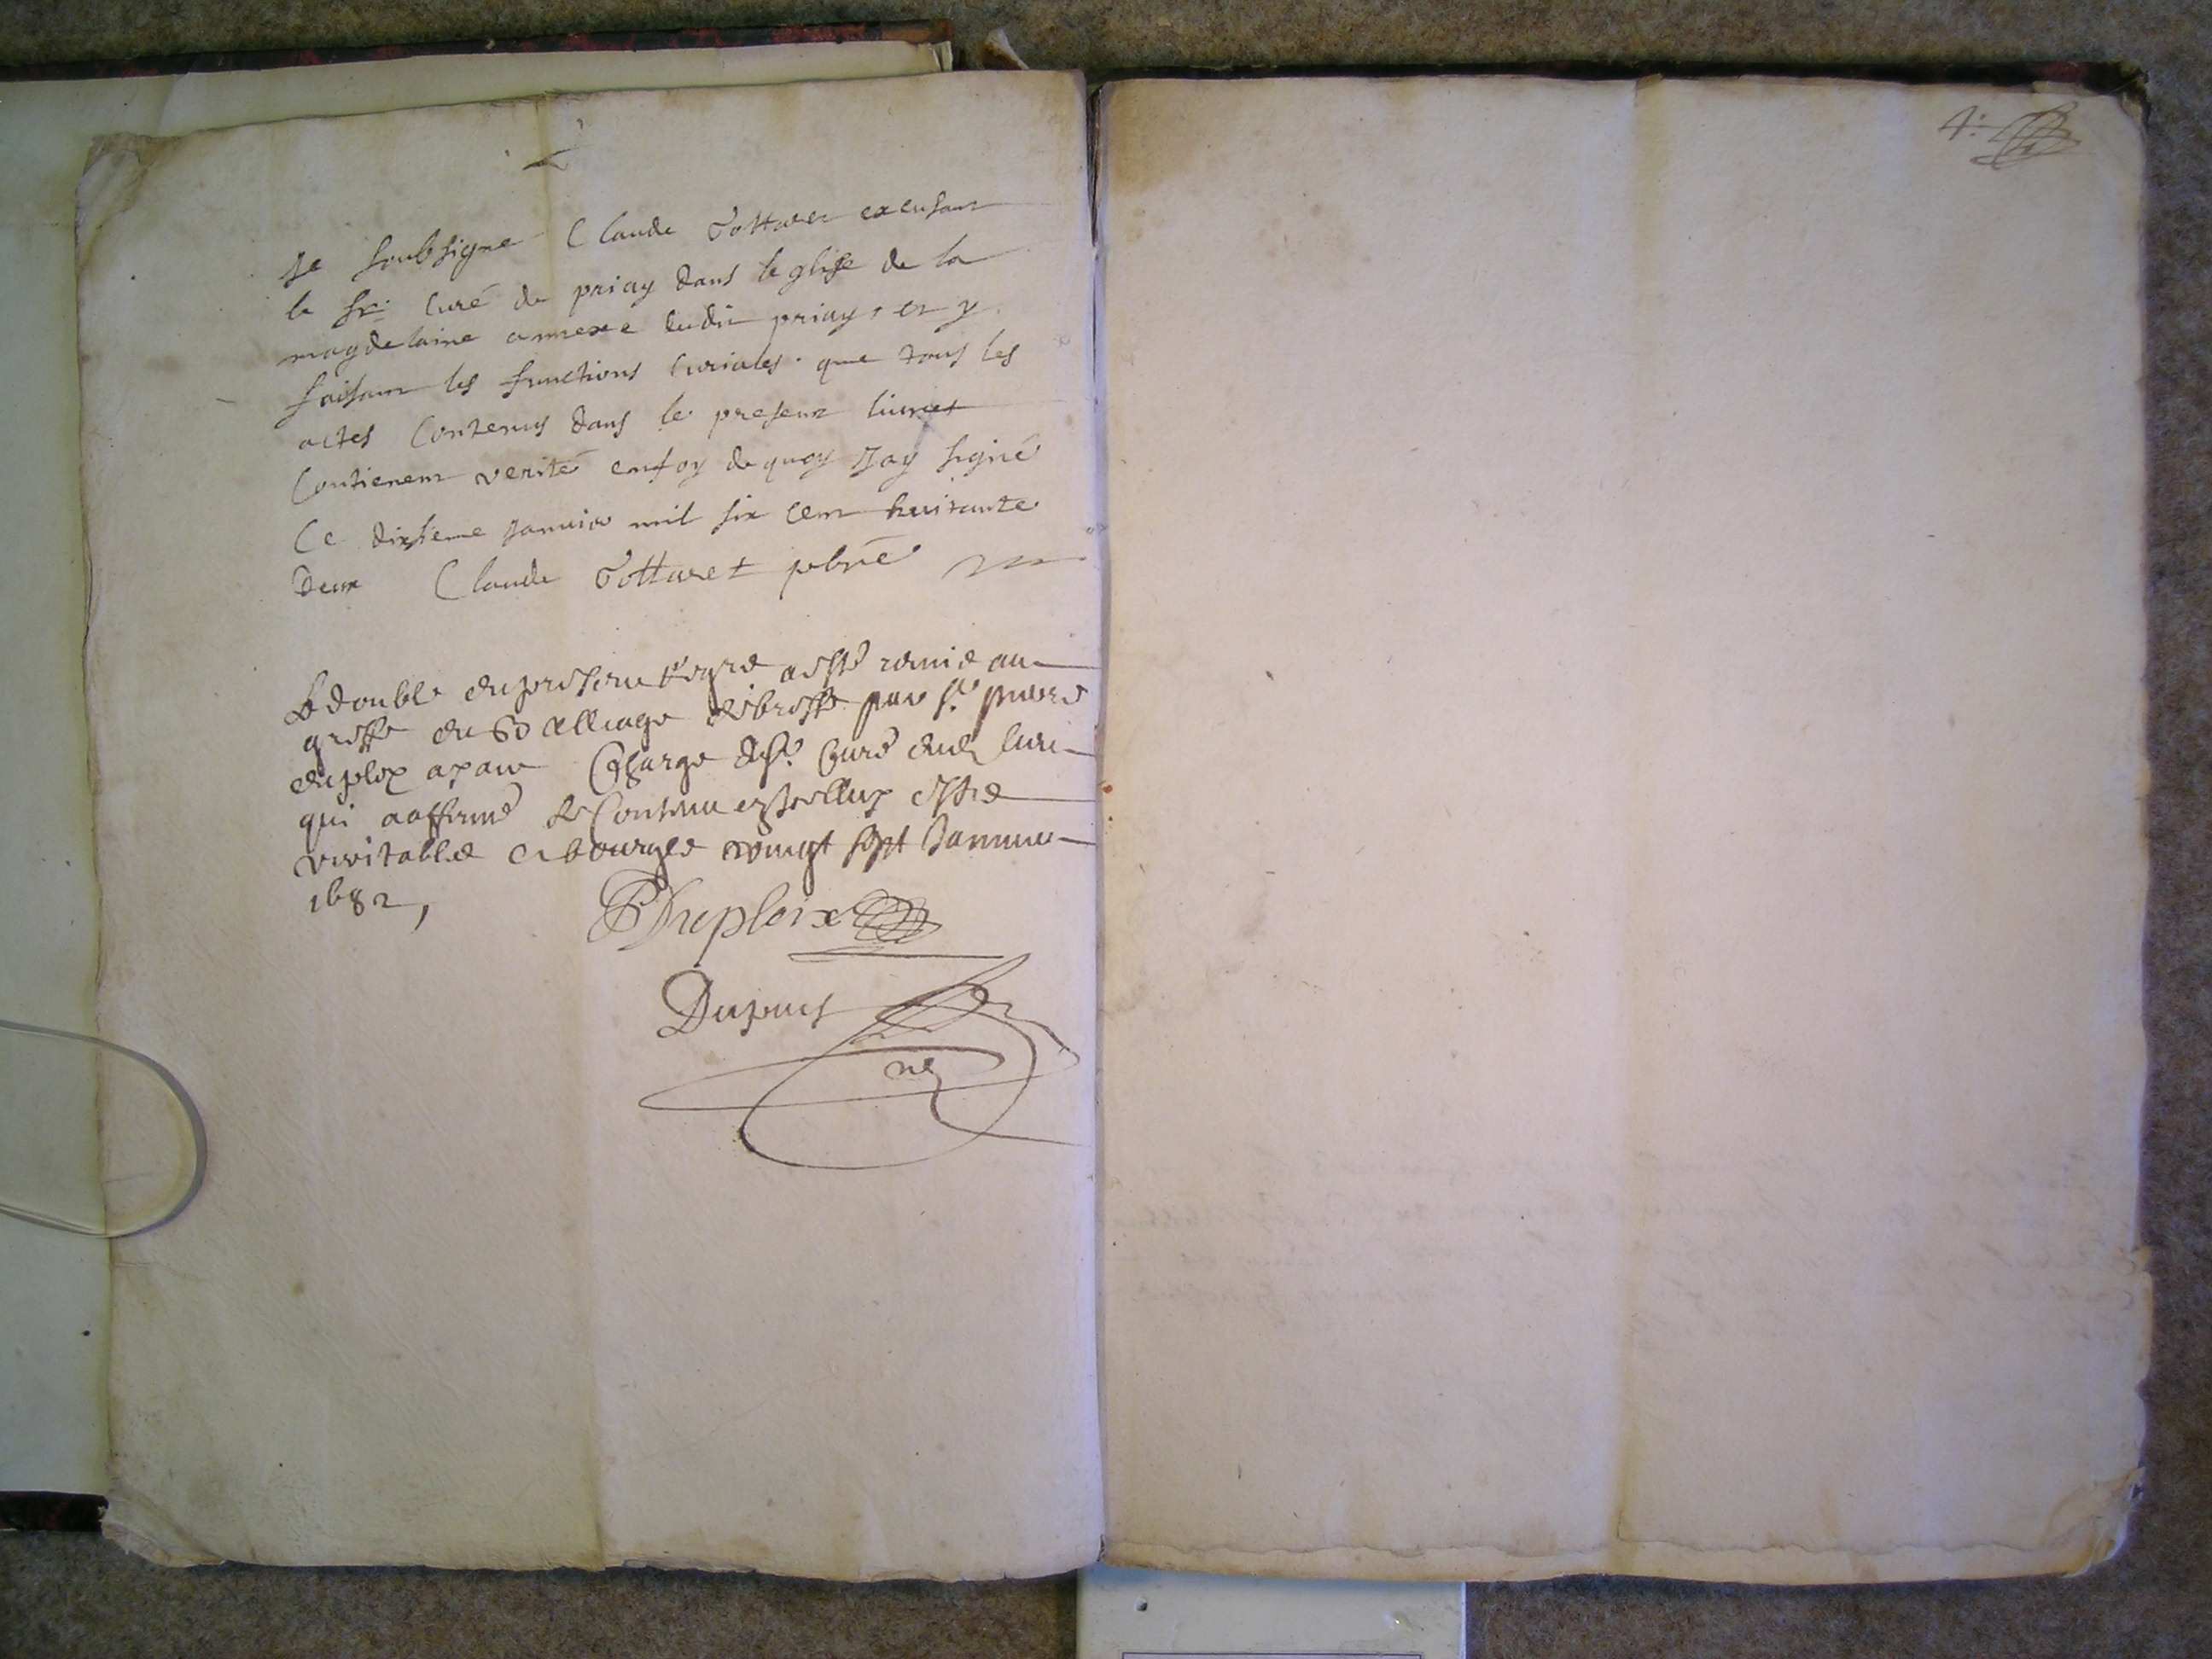 Je soubsigne Claude Tottaret excusant
le Sr. Curé de priay dans leglise de la
magdelaine annexe dudit priay, et y
faisant les functions Curiales que tous les
actes Contenus dans le present livre
Contienent verité enfoy de quoy Jay signé
Ce dixieme Janvier mil six cent huitante
Deux Claude Tottaret pbre
Le double du present Regre a esté remis au
greffe du Balliage de bresse par Sr. pierre
duploix ayant Charge du Sr. Curé dud lieu
qui a affirmé le Contenu estre
veritable a bourg le vingt sept Janvier
1682,
PDuploix
Dupuis
4.